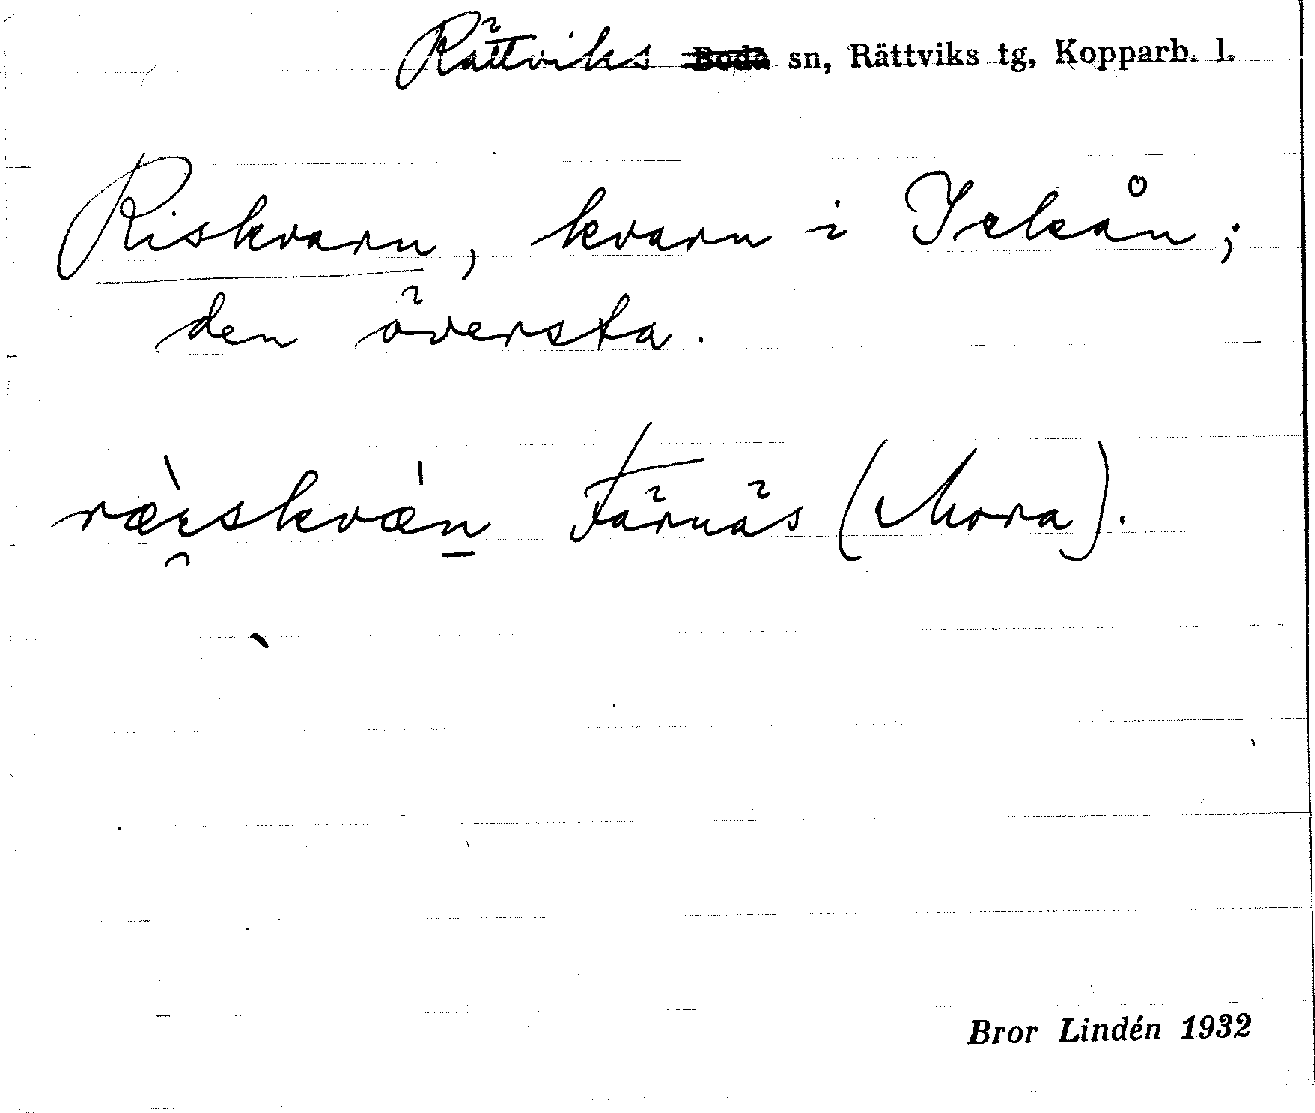 Rättviks ~~Boda~~ sn, Rättviks tg, Kopparb. l.
Riskvarn, kvarn i Ickån;
den översta.
Färnäs (Mora).
Bror Lindén 1932